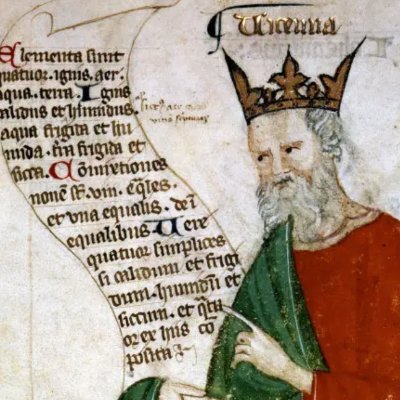 Avicenna
Elementa sunt
quatuor. ignis. aer.
aqua. terra. Ignis
calidus et humidus.
aqua frigida et hu
mida. tra frigida et
sicca. Cōplexiones
nouē st. viii. eqles.
et una equalis. de ī
equalibus Uere
quatuor simplices
s. calidum et frigi
dum. humidū et
siccum. et qtu
or ex his cō
posita